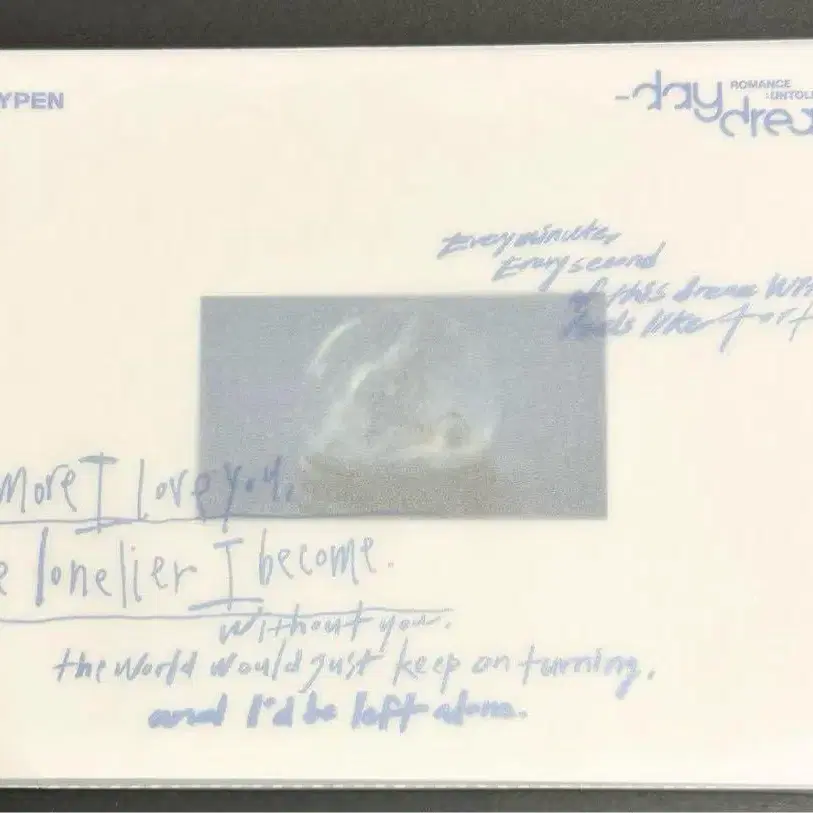 YPEN
ROMANCE
:UNTOL
-day
drea
Every minute,
Every second
of this dream
feels like
More I love you,
e lonelier I become.
without you.
the world would just keep on turning.
and I'd be left alone.